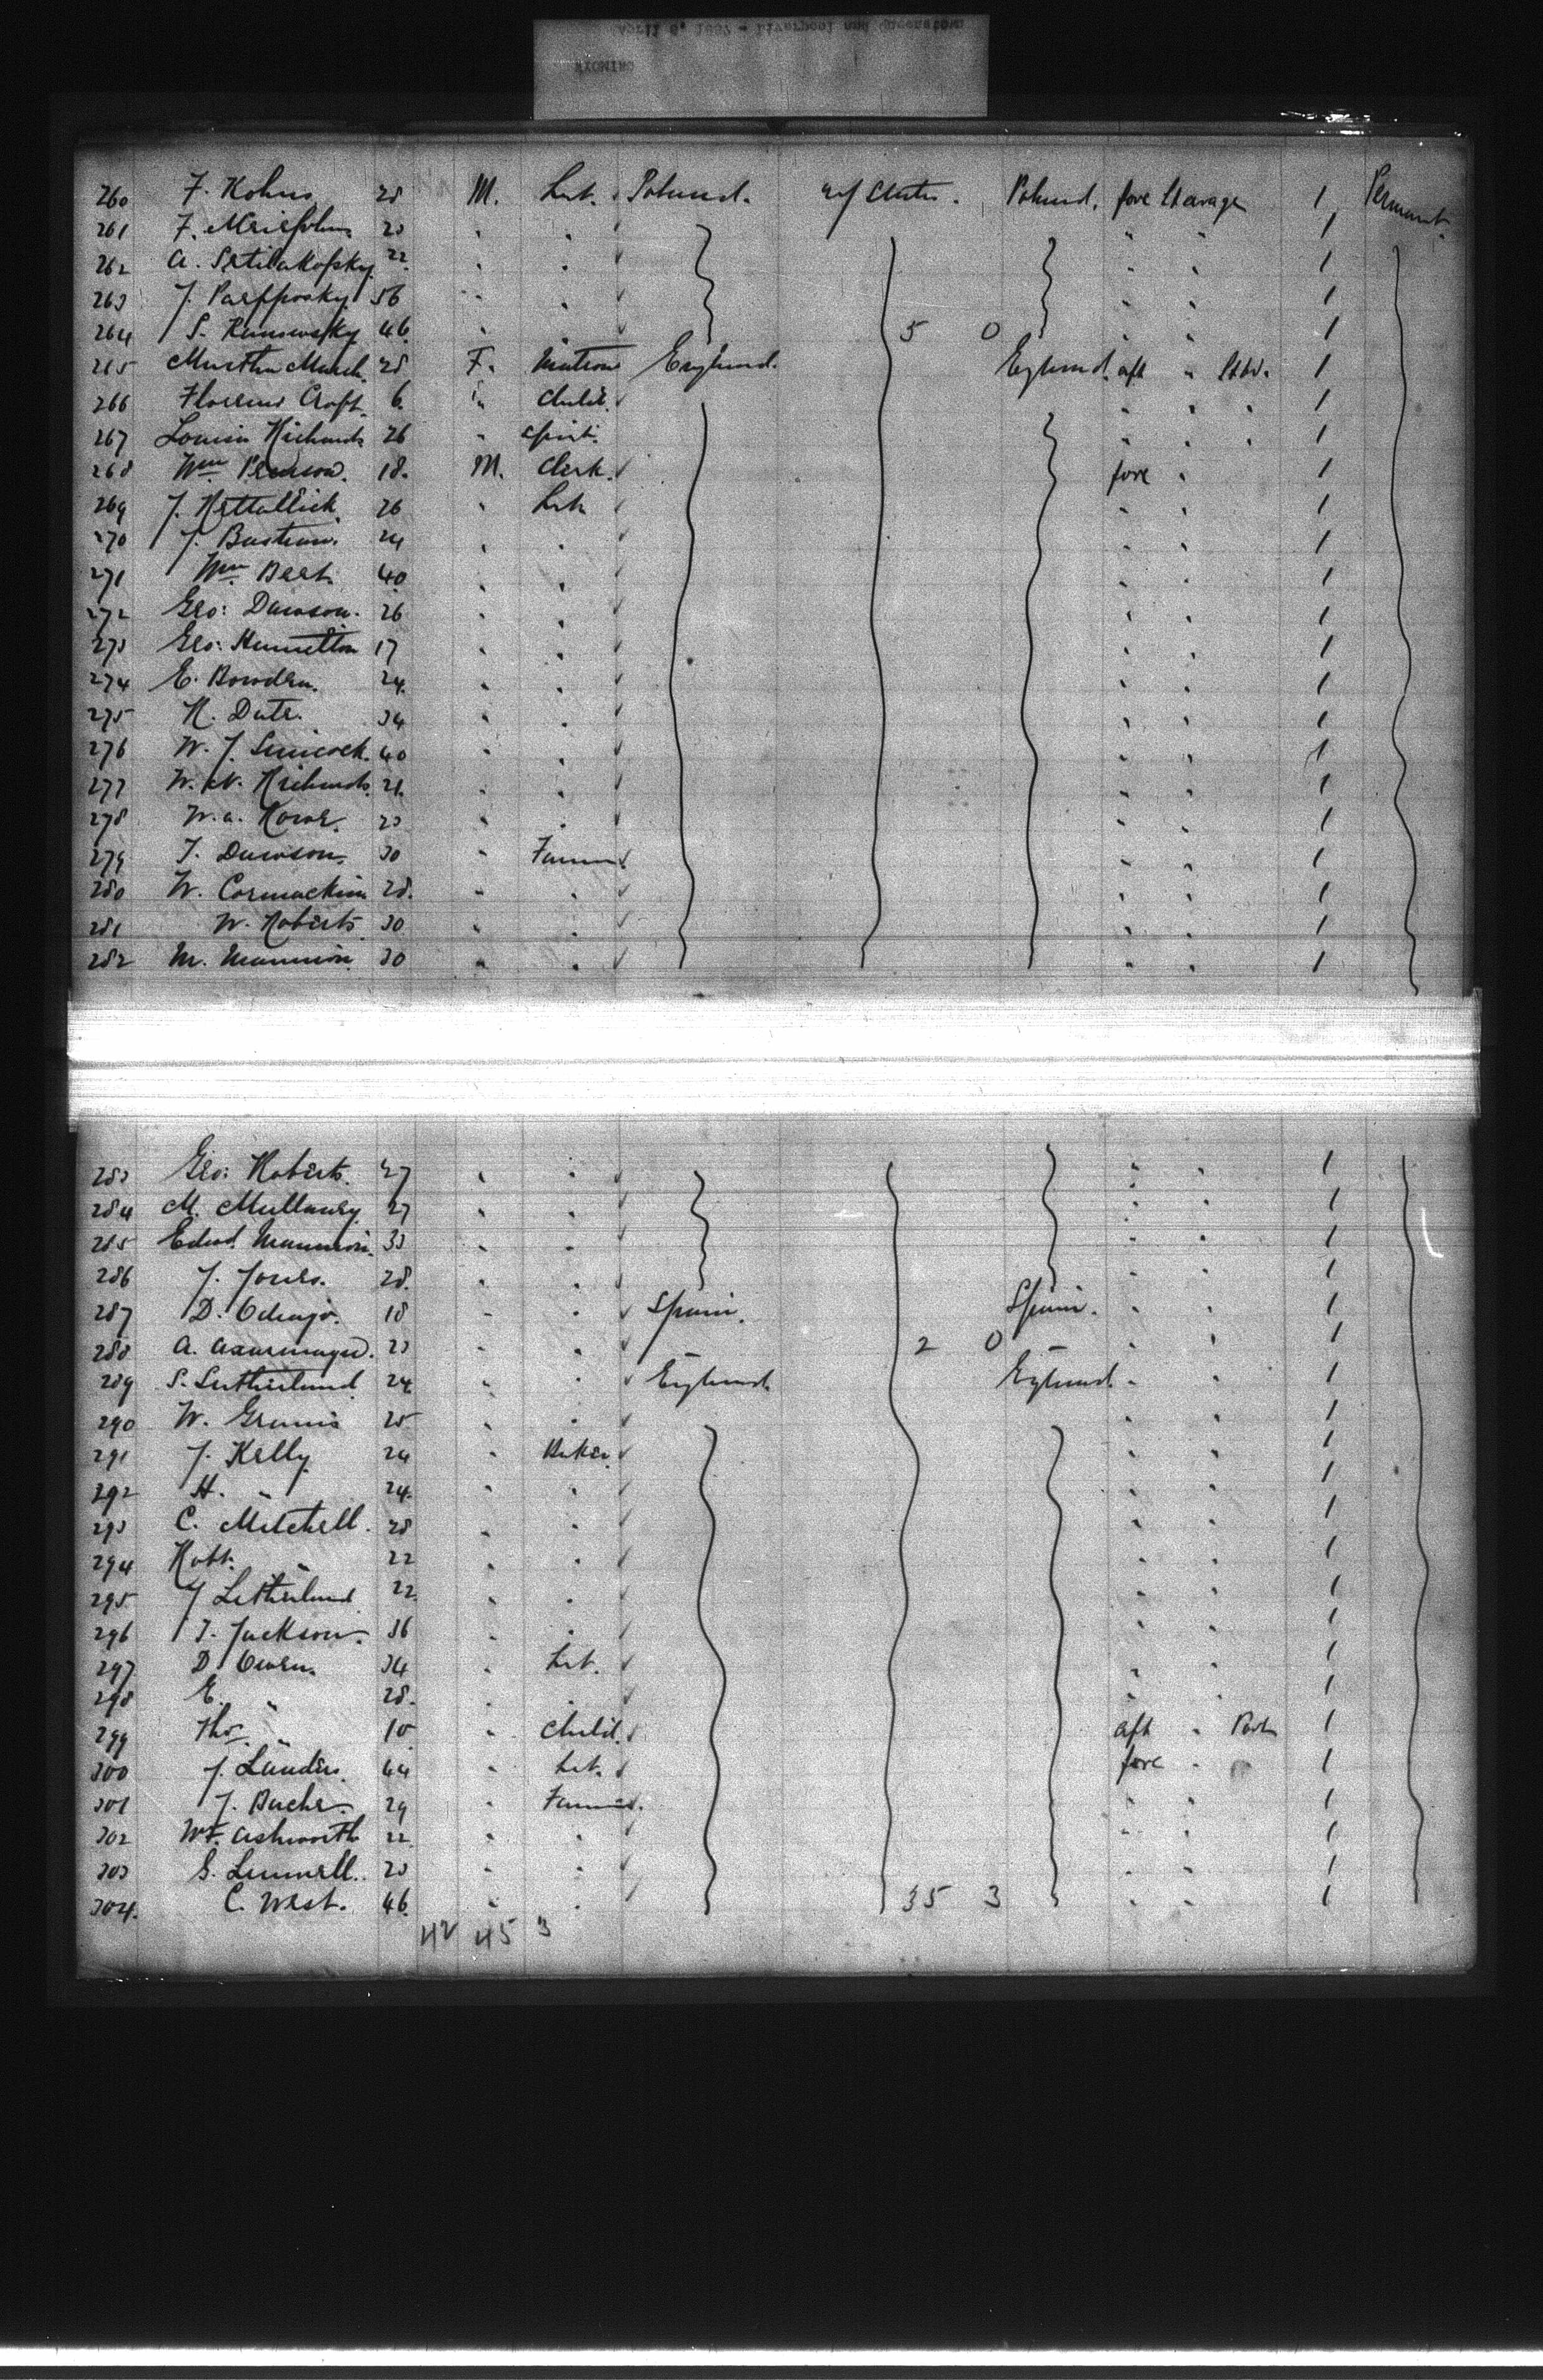 April 6, 1887 - Liverpool and Queenstown
WYOMING
260 F. Kohns 28 M. Lab. Poland. U/ States. Poland. fore Steerage 1 Permant.
261 F. 23 " " " " 1
262 A. 22 " " " " 1
263 J. 56 " " " " 1
264 S. 46 " " 5 0 " " 1
265 Martha March. 28 F. Matron England. England. aft " Stbd. 1
266 Florence Croft. 6. " Child. " " " 1
267 Louisa Richards 26 " Spinst. " " " 1
268 Wm Pearson. 18. M. Clerk. fore " 1
269 J. Nettallick 26 " Lab. " " 1
270 J. Bastian. 24 " " " " 1
271 Wm Best. 40 " " " " 1
272 Geo: Dawson. 26 " " " " 1
273 Geo: Hamilton 17 " " " " 1
274 E. Bowden. 24. " " " " 1
275 H. Date. 34 " " " " 1
276 W. J. 40 " " " " 1
277 W. H. Richards. 21. " " " " 1
278 W. A. Howe. 23 " " " " 1
279 T. Dawson. 30 " Farmer " " 1
280 W. 28. " " " " 1
281 W. Roberts. 30 " " " " 1
282 M. Mannion. 30 " " " " 1
283 Geo: Roberts. 27 " " " " 1
284 M. Mullaney. 27 " " " " 1
285 Edwd. Mannion. 33 " " " " 1
286 J. Jones. 28. " " " " 1
287 D. 18 " " Spain. Spain. " " 1
288 A. 23 " " 2 0 " " 1
289 S. Sutherland 24 " " England England " " 1
290 W. 25 " " " " 1
291 J. Kelly 24 " Baker. " " 1
292 H. " 24. " " " " 1
293 C. Mitchell. 28 " " " " 1
294 Robt. " 22 " " " " 1
295 J 22 " " " " 1
296 T. Jackson. 36 " " " " 1
297 D Owen. 34 " Lab. " " 1
298 E. " 28. " " " " 1
299 Thos. " 10 " Child. aft " Port 1
300 J. Landers. 44 " Lab. fore " 1
301 J. Bache. 29 " Farmer. " " 1
302 Wm. Ashworth 22 " " " " 1
303 S. 23 " " " " 1
304. C. West. 46. " " 35 3 " " 1
42 45 3